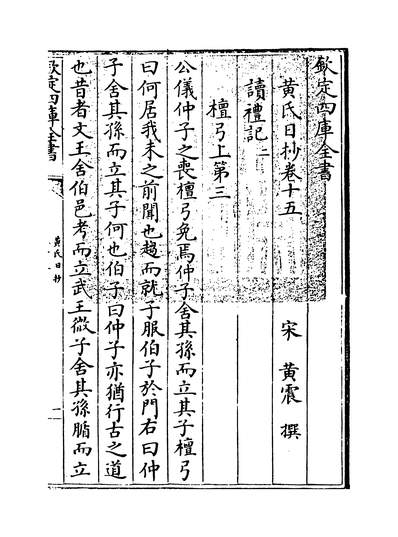 欽定四庫全書
黃氏日抄卷十五
宋 黃震 撰
讀禮記二
檀弓上第三
公儀仲子之喪檀弓免焉仲子舍其孫而立其子檀弓
曰何居我未之前聞也趨而就子服伯子於門右曰仲
子舍其孫而立其子何也伯子曰仲子亦猶行古之道
也昔者文王舍伯邑考而立武王微子舍其孫腯而立
欽定四庫全書
黃氏日抄